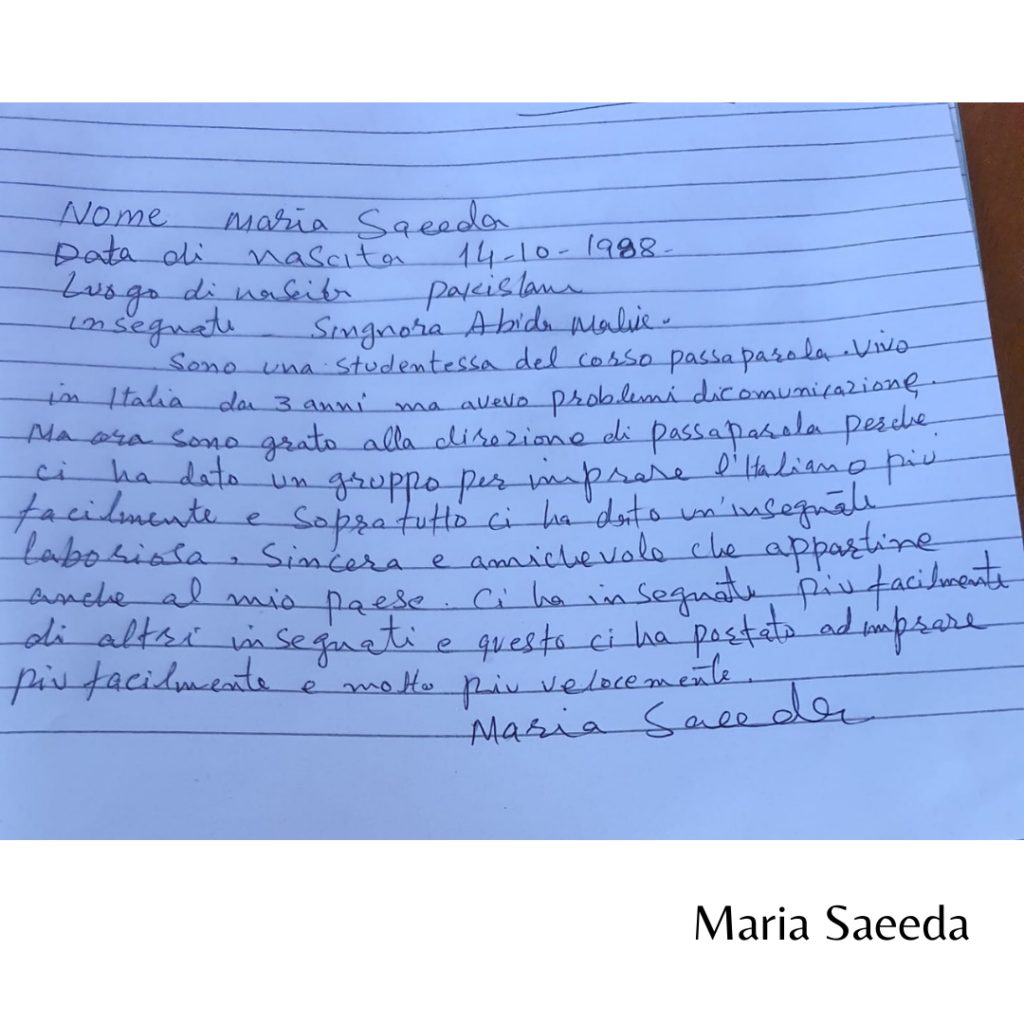 Nome Maria Saeeda
Data di nascita 14-10-1988-
Luogo di nascita pakistan
insegnate Singnora Abida Malik.
Sono una studentessa del corso passaparola. Vivo
in Italia da 3 anni ma avevo problemi di comunicazione.
Ma ora sono grato alla direzione di passaparola perche
ci ha dato un gruppo per imprare l'Italiano più
facilmente e sopratutto ci ha dato un'insegnate
laboriosa, sincera e amichevole che appartine
anche al mio paese. Ci ha insegnato piu facilmente
di altri insegnati e questo ci ha portato ad imprare
piu facilmente e molto piu velocemente.
Maria Saeeda
Maria Saeeda